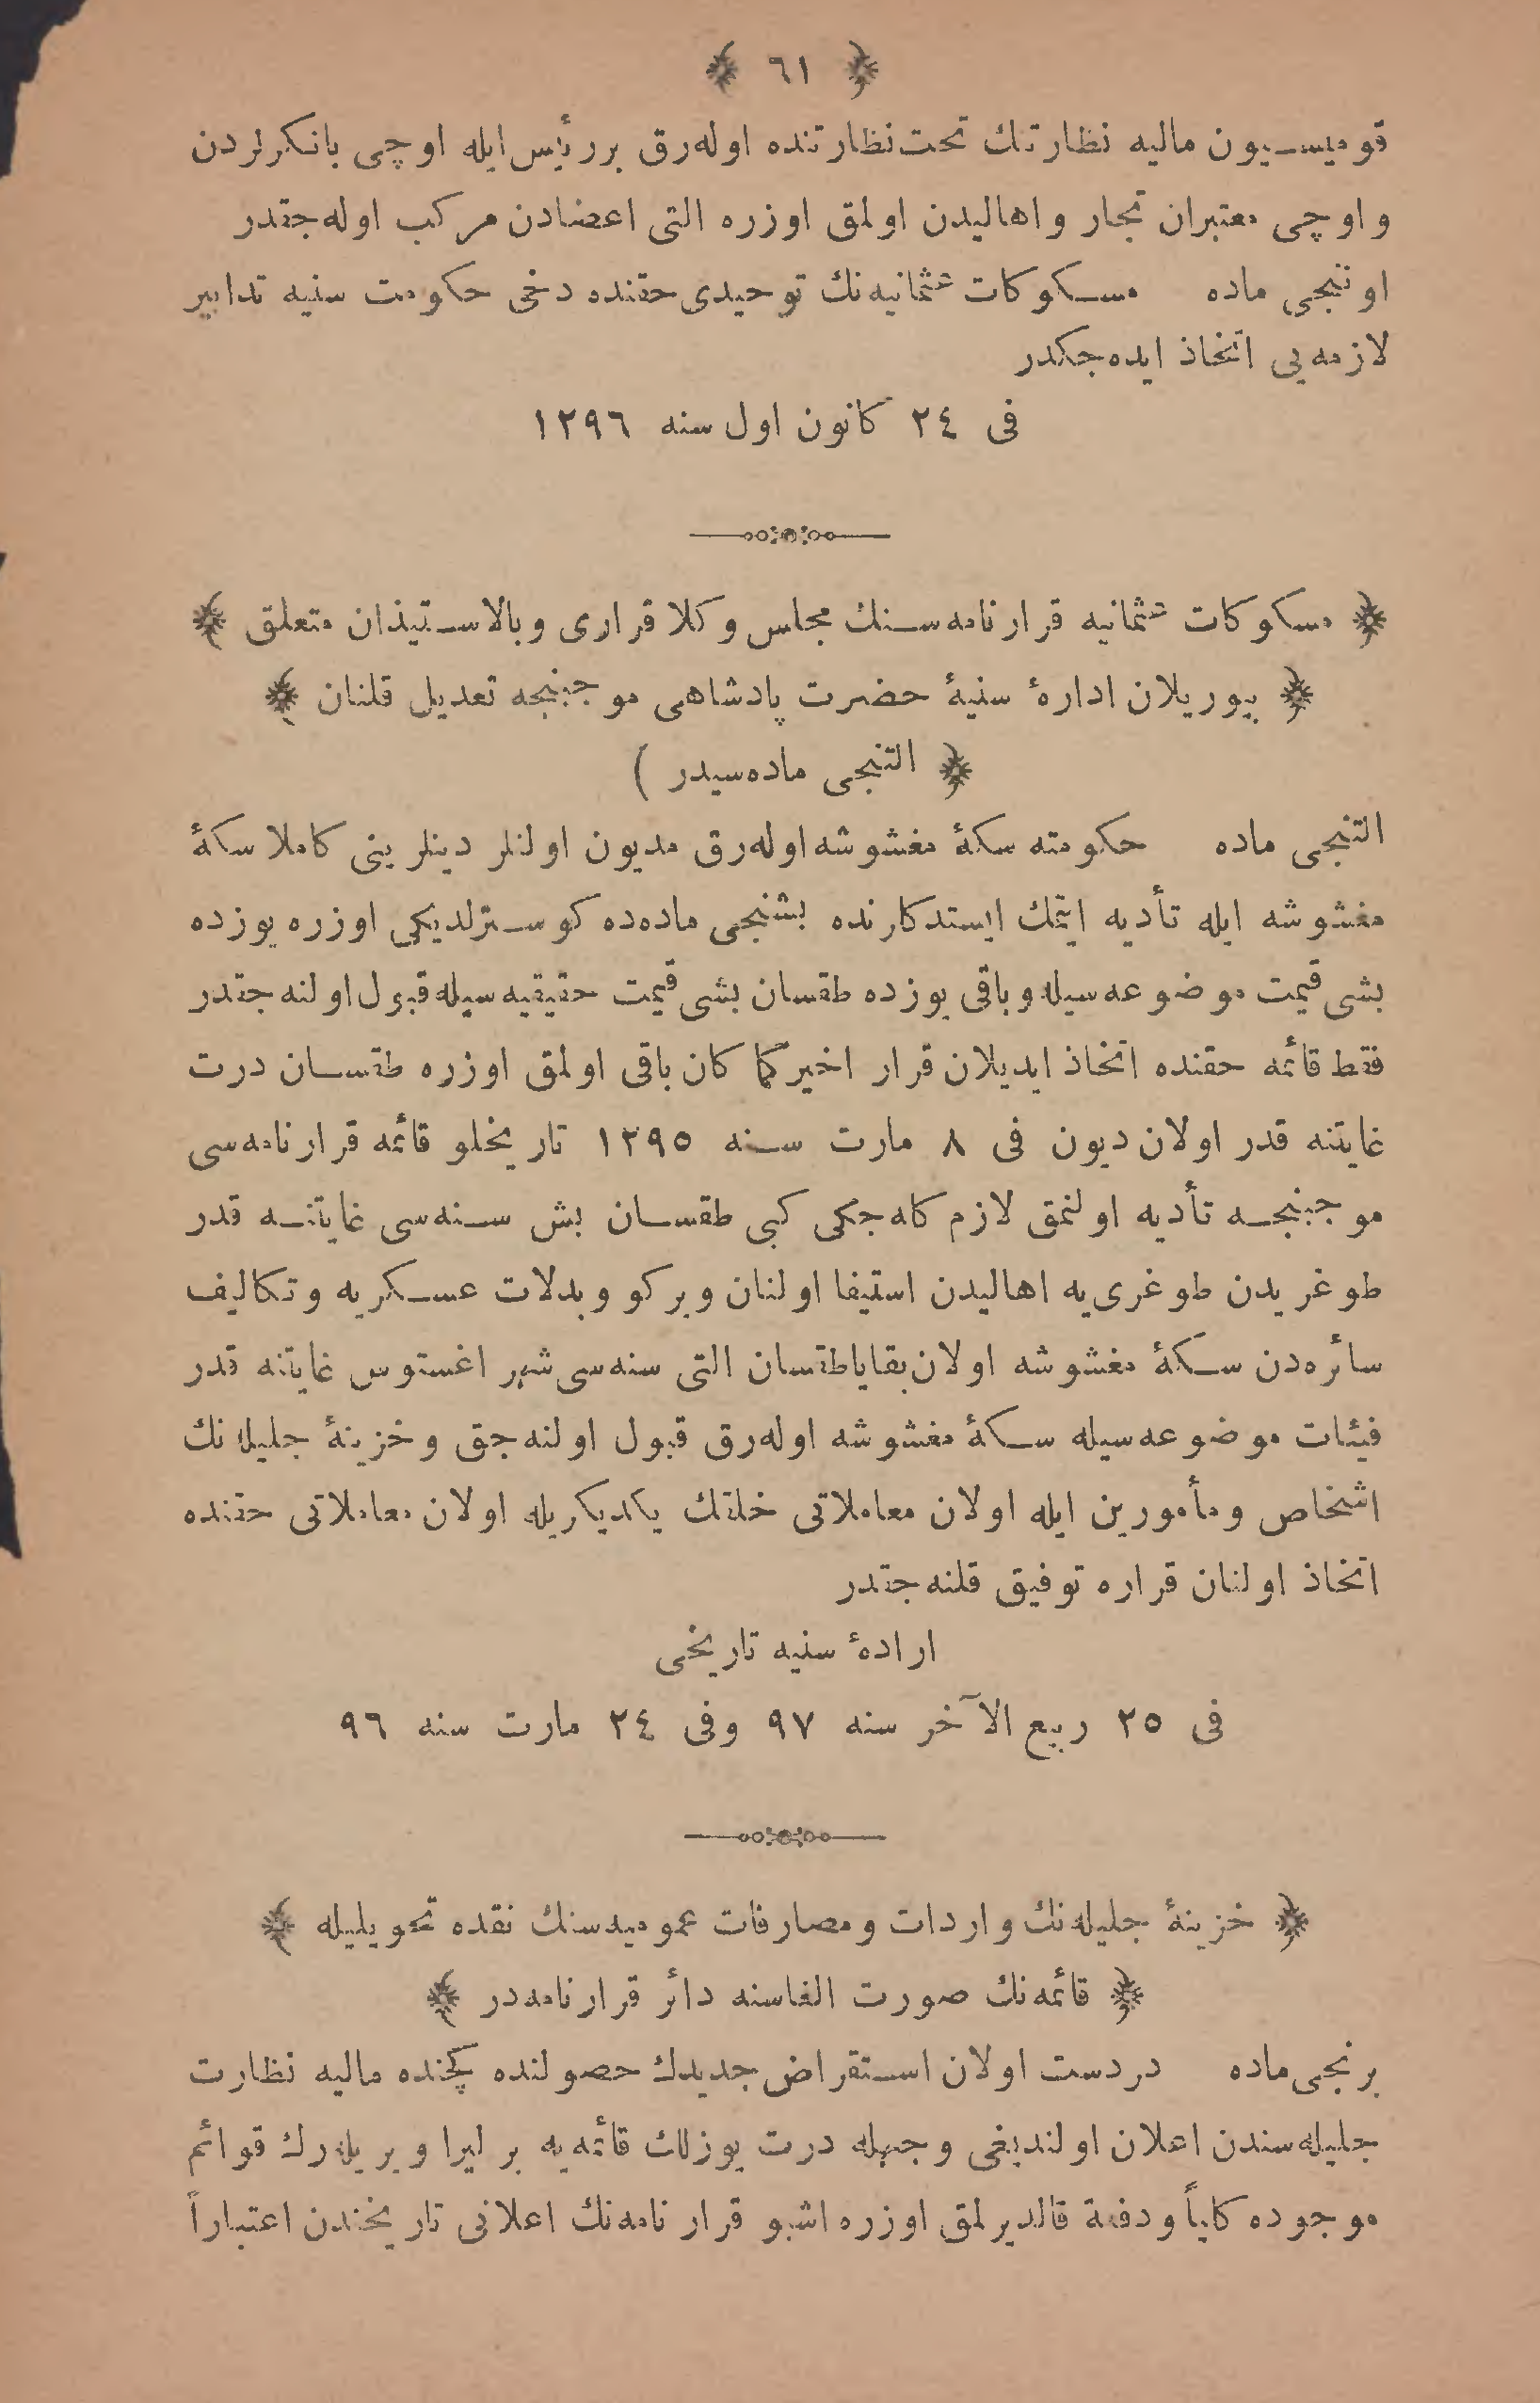 ﴿ ٦١ ﴾
قومیسیون مالیه نظارتنك تحت نظارتنده اوله‌رق بر رئیس ایله اوچی بانكرلردن
و اوچی معتبران تجار و اهالیدن اولمق اوزره التی اعضادن مركب اوله‌جقدر
اوننجی ماده مسكوكات عثمانیه‌نك توحیدی حقنده دخی حكومت سنیه تدابیر
لازمه‌یی اتخاذ ایده‌جكدر
فی ٢٤ كانون اول سنه ١٢٩٦
﴿ مسكوكات عثمانیه قرارنامه‌سنك مجلس وكلا قراری و بالاستیذان متعلق ﴾
﴿ بیوریلان ادارۀ سنیۀ حضرت پادشاهی موجبنجه تعدیل قلنان ﴾
﴿ التنجی ماده‌سیدر )
التنجی ماده حكومته سكۀ مغشوشه اوله‌رق مدیون اولنلر دینلرینی كاملا سكۀ
مغشوشه ایله تأدیه ایتمك ایستدكارنده بشنجی ماده‌ده كوسترلدیكی اوزره یوزده
بشی قیمت موضوعه‌سیله و باقی یوزده طقسان بشی قیمت حقیقیه‌سیله قبول اولنه‌جقدر
فقط قائمه حقنده اتخاذ ایدیلان قرار اخیر كما كان باقی اولمق اوزره طقسان درت
غایتنه قدر اولان دیون فی ٨ مارت سنه ١٢٩٥ تاریخلو قائمه قرارنامه‌سی
موجبنجه تأدیه اولنمق لازم كله‌جكی كبی طقسان بش سنه‌سی غایتنه قدر
طوغریدن طوغری‌یه اهالیدن استیفا اولنان ویركو و بدلات عسكریه و تكالیف
سائره‌دن سكۀ مغشوشه اولان بقایا طقسان التی سنه‌سی شهر اغستوس غایتنه قدر
فیئات موضوعه‌سیله سكۀ مغشوشه اوله‌رق قبول اولنه‌جق و خزینۀ جلیله‌نك
اشخاص و مأمورین ایله اولان معاملاتی خلقك یكدیكریله اولان معاملاتی حقنده
اتخاذ اولنان قراره توفیق قلنه‌جقدر
ارادۀ سنیه تاریخی
فی ٢٥ ربیع الآخر سنه ٩٧ وفی ٢٤ مارت سنه ٩٦
﴿ خزینۀ جلیله‌نك واردات و مصارفات عمومیه‌سنك نقده تحویلیله ﴾
﴿ قائمه‌نك صورت الغاسنه دائر قرارنامه‌در ﴾
برنجی ماده دردست اولان استقراض جدیدك حصولنده پچنده مالیه نظارت
جلیله‌سندن اعلان اولندیغی وجهله درت یوزلك قائمه‌یه بر لیرا ویریله‌رك قوائم
موجوده كلیاً و دفعة قالدیرلمق اوزره اشبو قرارنامه‌نك اعلانی تاریخندن اعتباراً